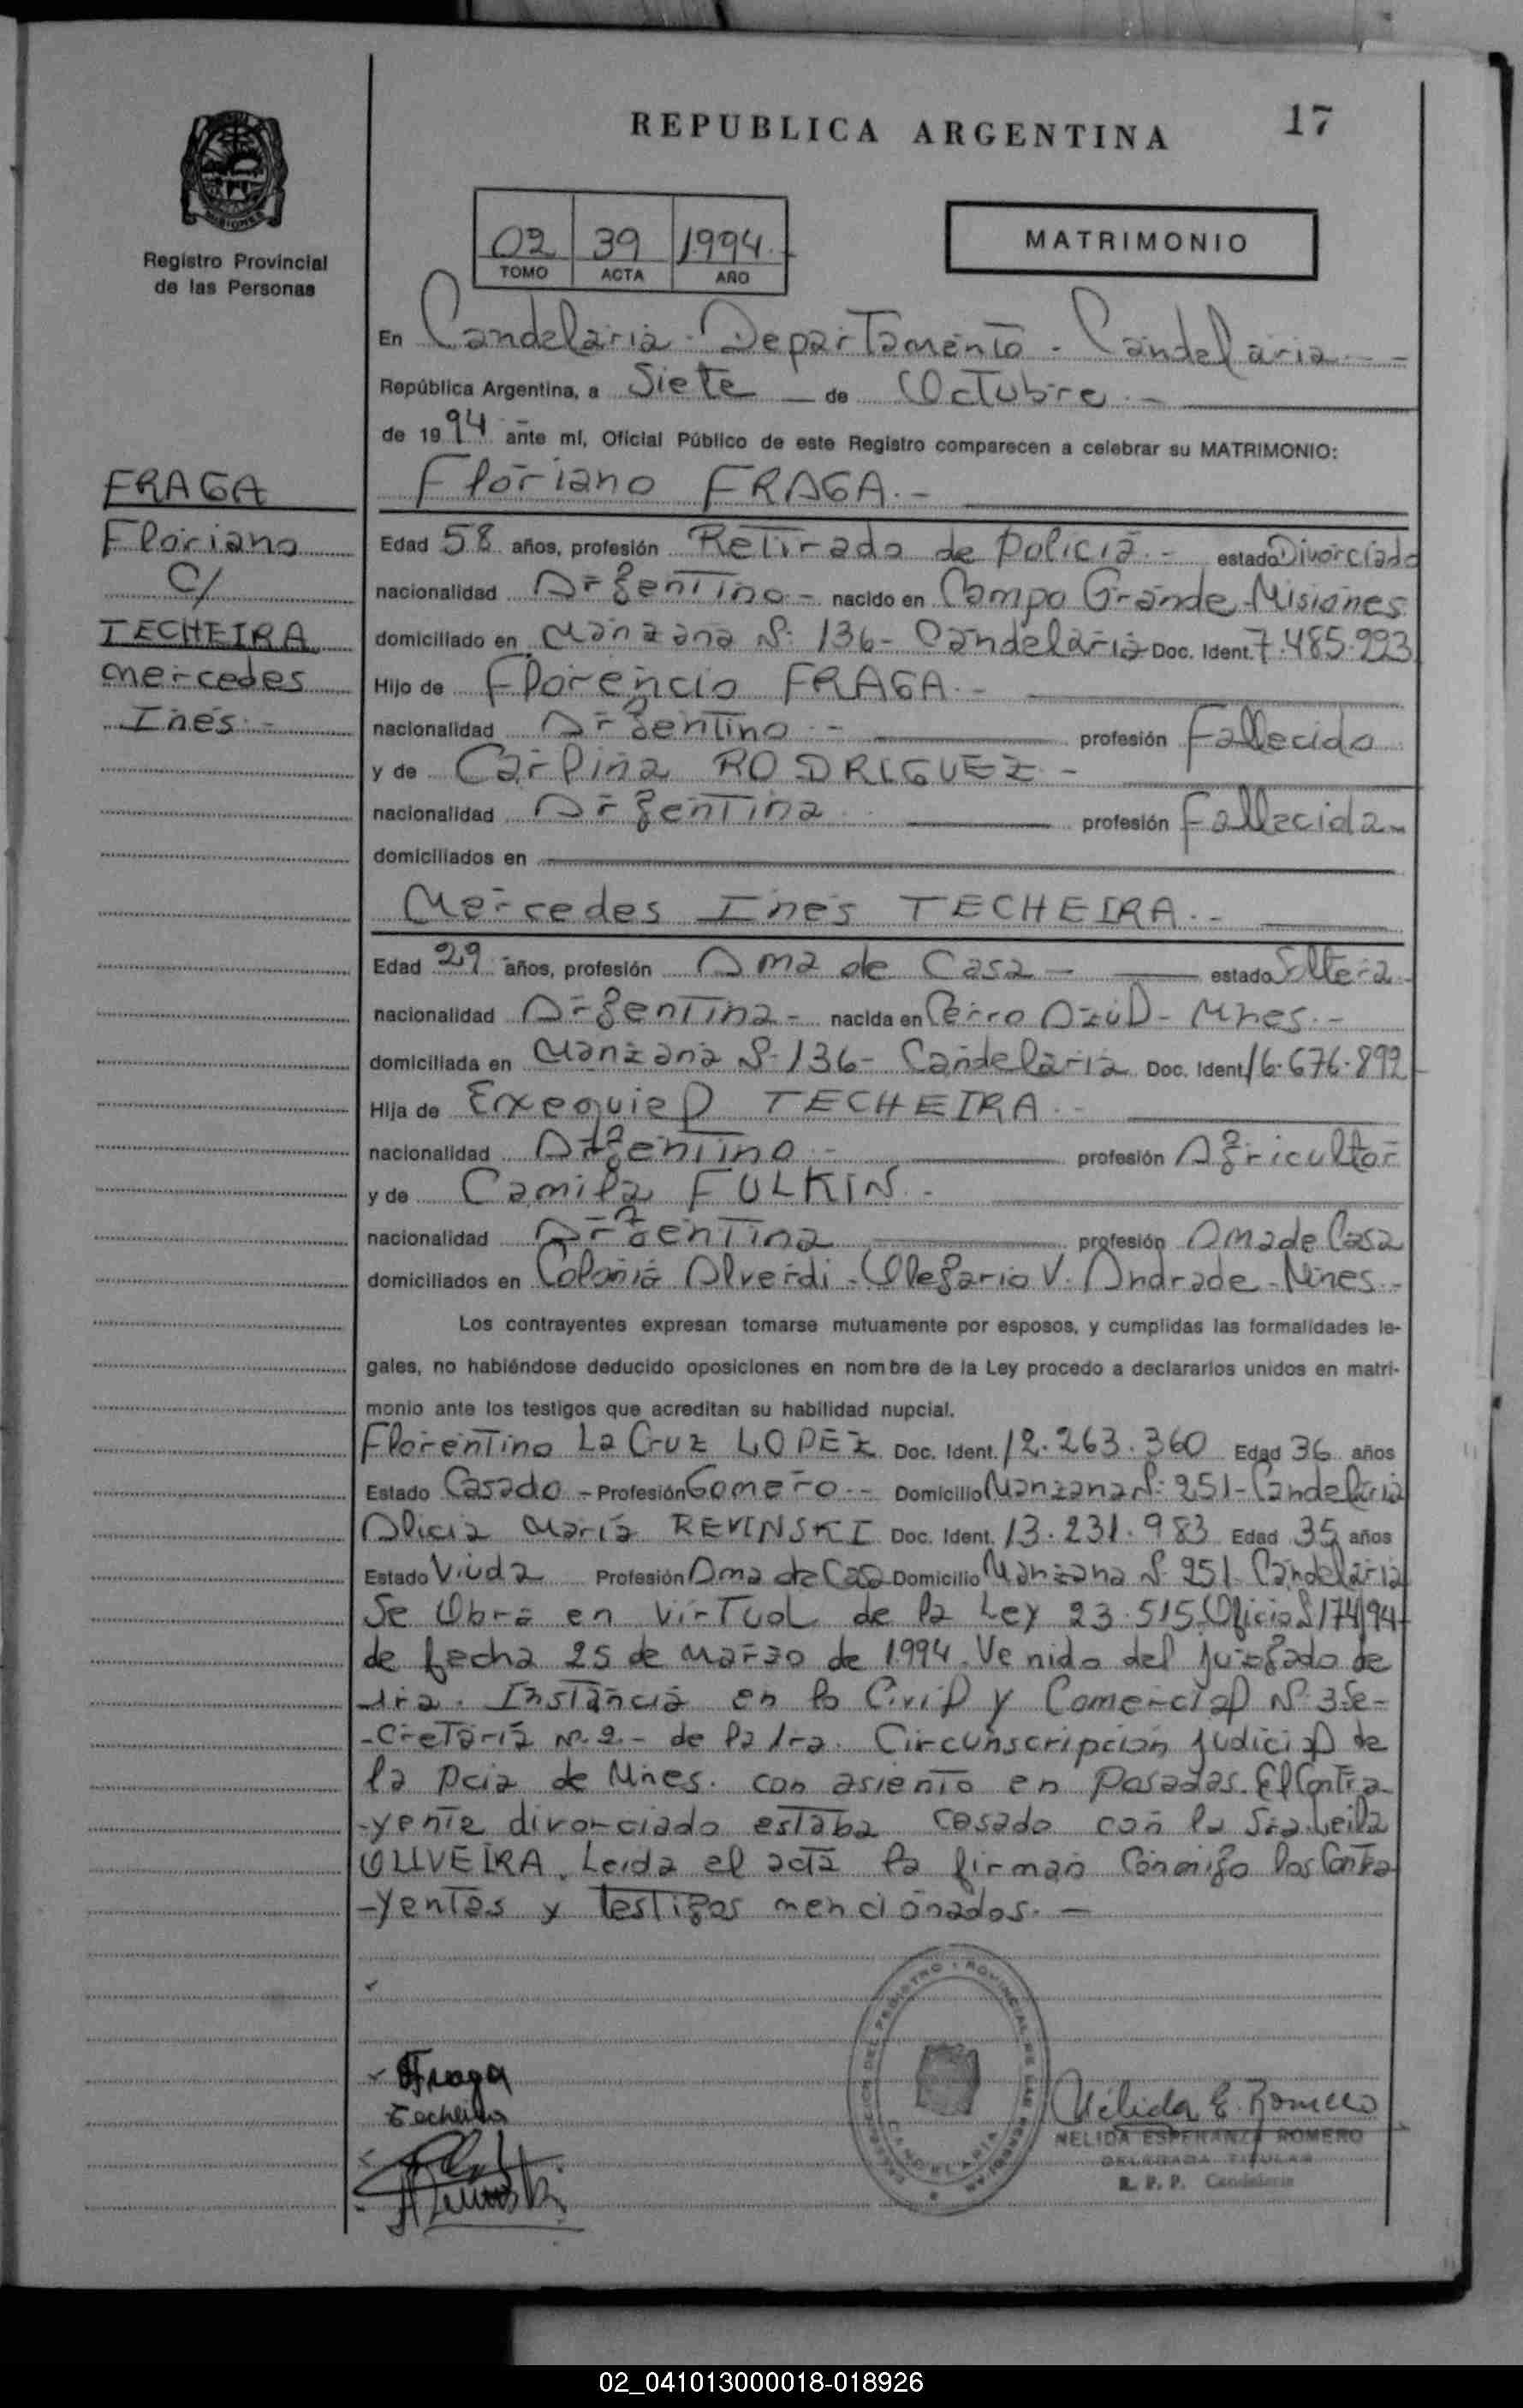 REPUBLICA ARGENTINA
17
MISIONES
Registro Provincial
de las Personas
02 39 1994.-
TOMO ACTA AÑO
MATRIMONIO
En Candelaria - Departamento - Candelaria.--
República Argentina, a Siete - de Octubre.-
de 1994 ante mí, Oficial Público de este Registro comparecen a celebrar su MATRIMONIO:
FRAGA
Floriano
C/
TECHEIRA
Mercedes
Ines.-
Floriano FRAGA.-
Edad 58 años, profesión Retirado de Policia.- estado Divorciado
nacionalidad Argentino - nacido en Campo Grande-Misiones
domiciliado en Manzana Nº 136- Candelaria Doc. Ident. 7.485.993
Hijo de Florencio FRAGA.-
nacionalidad Argentino.- profesión Fallecido
y de Carlina RODRIGUEZ.-
nacionalidad Argentina profesión Fallecida-
domiciliados en
Mercedes Ines TECHEIRA.-
Edad 29 años, profesión Ama de Casa - estado Soltera
nacionalidad Argentina - nacida en Cerro Azul - Mnes.-
domiciliada en Manzana Nº 136- Candelaria Doc. Ident. 16.676.892
Hija de Exequiel TECHEIRA.-
nacionalidad Argentino.- profesión Agricultor
y de Camila FULKIN.-
nacionalidad Argentina profesión Ama de Casa
domiciliados en Colonia Alverdi - Olegario V. Andrade - Mnes.-
Los contrayentes expresan tomarse mutuamente por esposos, y cumplidas las formalidades le-
gales, no habiéndose deducido oposiciones en nombre de la Ley procedo a declararlos unidos en matri-
monio ante los testigos que acreditan su habilidad nupcial.
Florentino La Cruz LOPEZ Doc. Ident. 12.263.360 Edad 36 años
Estado Casado - Profesión Gomero.- Domicilio Manzana Nº 251- Candelaria
Alicia Maria REVINSKI Doc. Ident. 13.231.983 Edad 35 años
Estado Viuda Profesión Ama de Casa Domicilio Manzana Nº 251- Candelaria
Se Obra en virtual de la Ley 23.515. Oficio Nº 174/94
de fecha 25 de Marzo de 1994. Venido del Juzgado de
1ra. Instancia en lo Civil y Comercial Nº 3-Se-
-cretaria Nº 2.- de la 1ra. Circunscripcion Judicial de
la Pcia de Mnes. con asiento en Posadas. El Contra
-yente divorciado estaba casado con la Sra. Leila
OLIVEIRA. Leida el acta la firman conmigo los Contra
-yentes y testigos mencionados.-
Fraga
Techeira
CANDELARIA
Nélida E. Romero
NELIDA ESPERANZA ROMERO
DELEGADA TITULAR
R. P. P. Candelaria
02_041013000018-018926